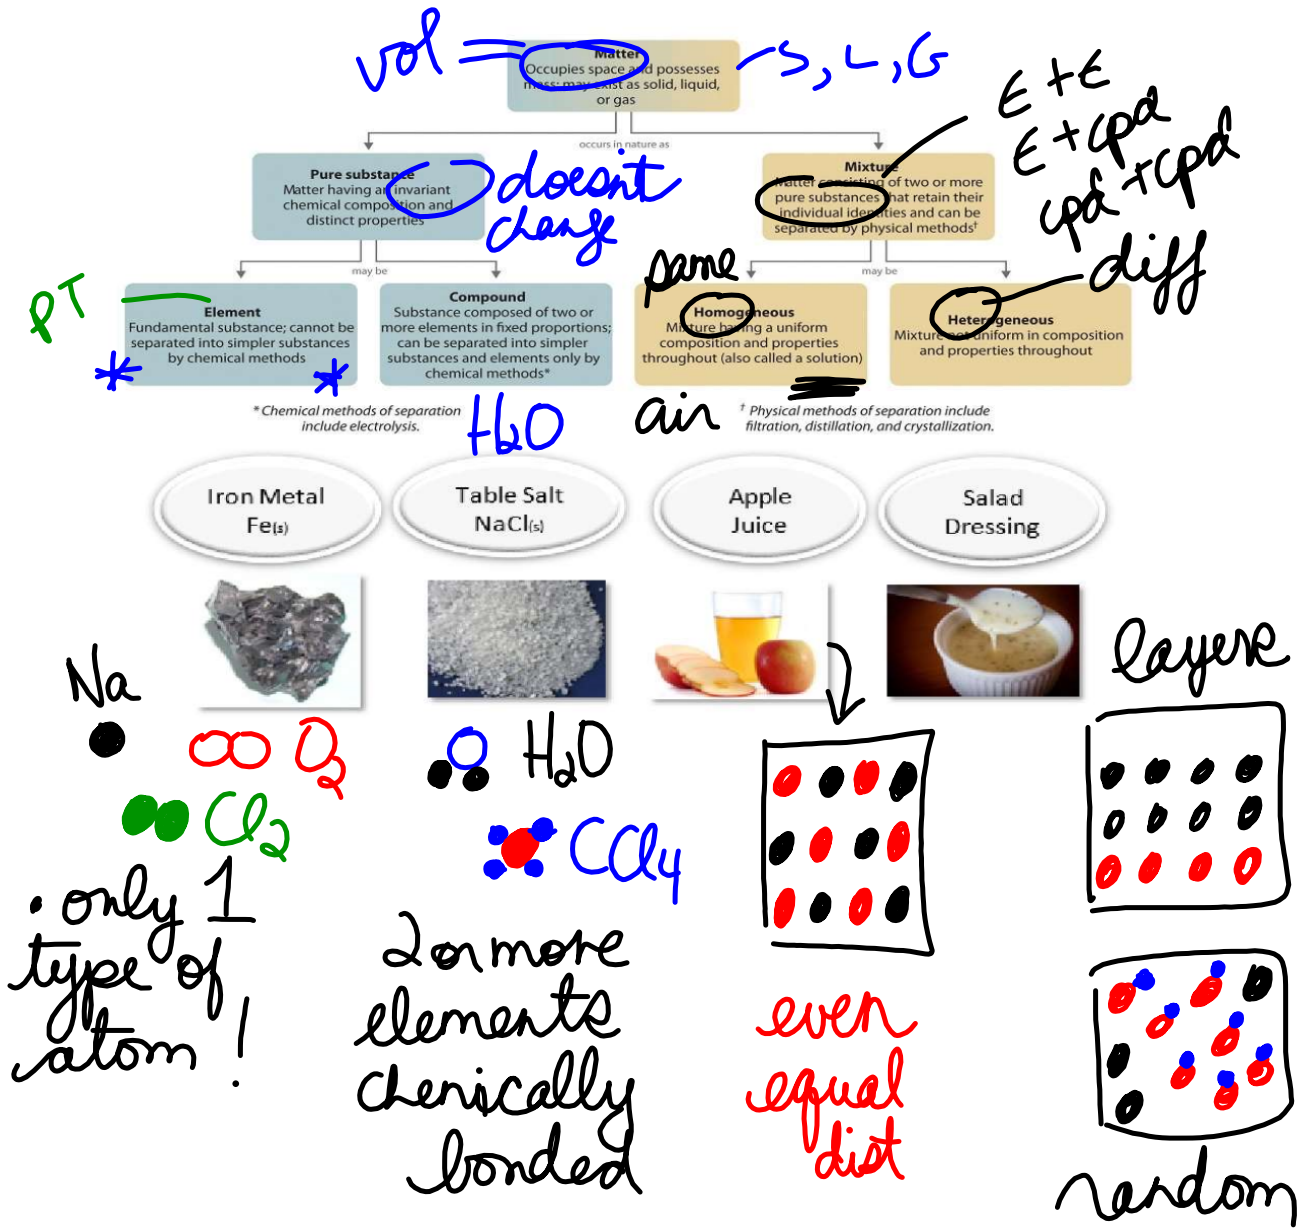 vol
Matter
Occupies space and possesses
mass; may exist as solid, liquid,
or gas
S, L, G
occurs in nature as
Pure substance
Matter having an invariant
chemical composition and
distinct properties
doesn't
change
Mixture
Matter consisting of two or more
pure substances that retain their
individual identities and can be
separated by physical methods†
E + E
E + cpd
cpd + cpd
may be
may be
PT
Element
Fundamental substance; cannot be
separated into simpler substances
by chemical methods
Compound
Substance composed of two or
more elements in fixed proportions;
can be separated into simpler
substances and elements only by
chemical methods*
same
Homogeneous
Mixture having a uniform
composition and properties
throughout (also called a solution)
diff
Heterogeneous
Mixture not uniform in composition
and properties throughout
* Chemical methods of separation
include electrolysis.
H2O
air
† Physical methods of separation include
filtration, distillation, and crystallization.
Iron Metal
Fe(s)
Table Salt
NaCl(s)
Apple
Juice
Salad
Dressing
Na
O2
Cl2
• only 1
type of
atom !
H2O
CCl4
2 or more
elements
chemically
bonded
even
equal
dist
layers
random